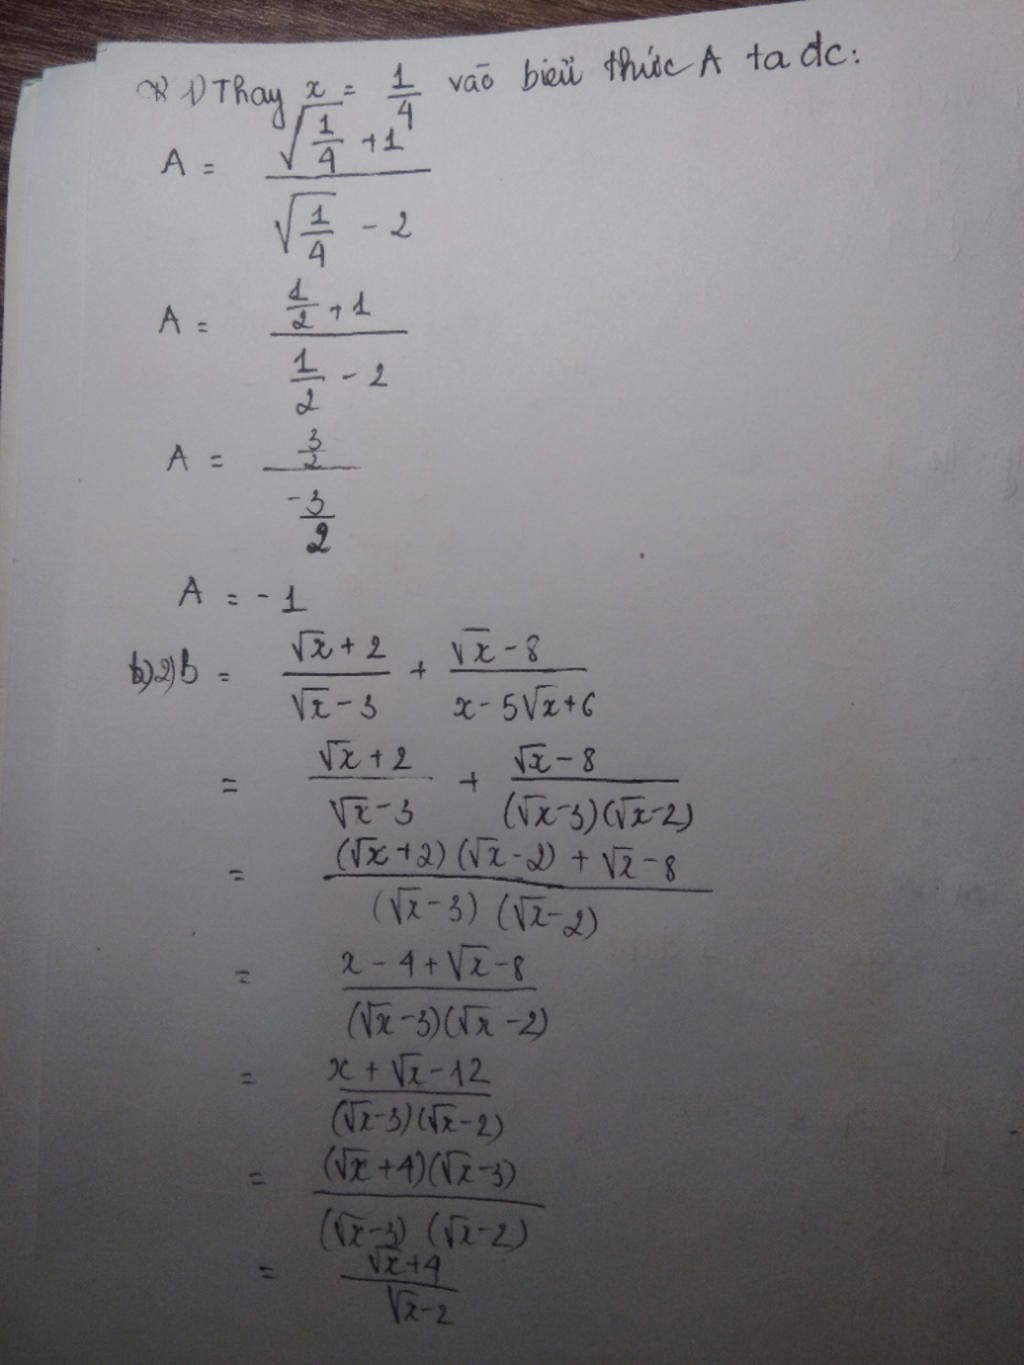 1) Thay x = 1/4 vào biểu thức A ta dc:
A = (√(1/4) + 1)/(√(1/4) - 2)
A = (1/2 + 1)/(1/2 - 2)
A = (3/2)/(-3/2)
A = - 1
b) 2) b = (√x + 2)/(√x - 3) + (√x - 8)/(x - 5√x + 6)
= (√x + 2)/(√x - 3) + (√x - 8)/((√x - 3)(√x - 2))
= ((√x + 2)(√x - 2) + √x - 8)/((√x - 3)(√x - 2))
= (x - 4 + √x - 8)/((√x - 3)(√x - 2))
= (x + √x - 12)/((√x - 3)(√x - 2))
= ((√x + 4)(√x - 3))/((√x - 3)(√x - 2))
= (√x + 4)/(√x - 2)